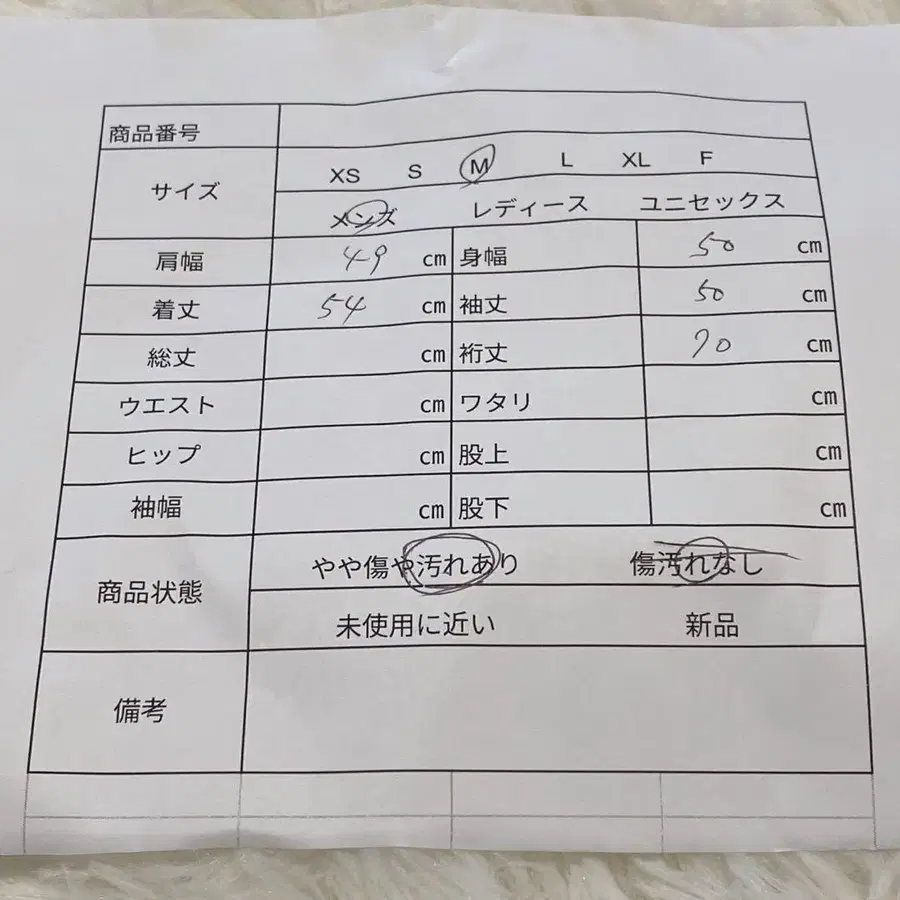 商品番号
サイズ XS S M L XL F
メンズ レディース ユニセックス
肩幅 49 cm 身幅 50 cm
着丈 54 cm 袖丈 50 cm
総丈 cm 裄丈 70 cm
ウエスト cm ワタリ cm
ヒップ cm 股上 cm
袖幅 cm 股下 cm
商品状態 やや傷や汚れあり 傷汚れなし
未使用に近い 新品
備考